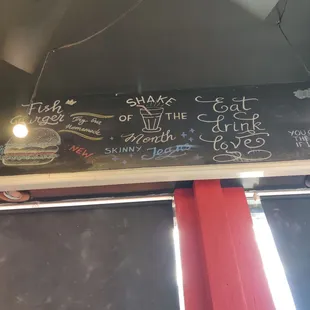 Fish
Burger
Try the
homemade
NEW
SHAKE
OF THE
Month
SKINNY Jeans
Eat
drink
love
YOU
IF